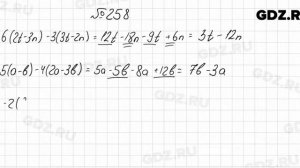 №258
GDZ.RU
6(2t-3n)-3(3t-2n)=12t-18n-9t+6n=3t-12n
5(a-b)-4(2a-3b)=5a-5b-8a+12b=7b-3a
-2(
GDZ.RU